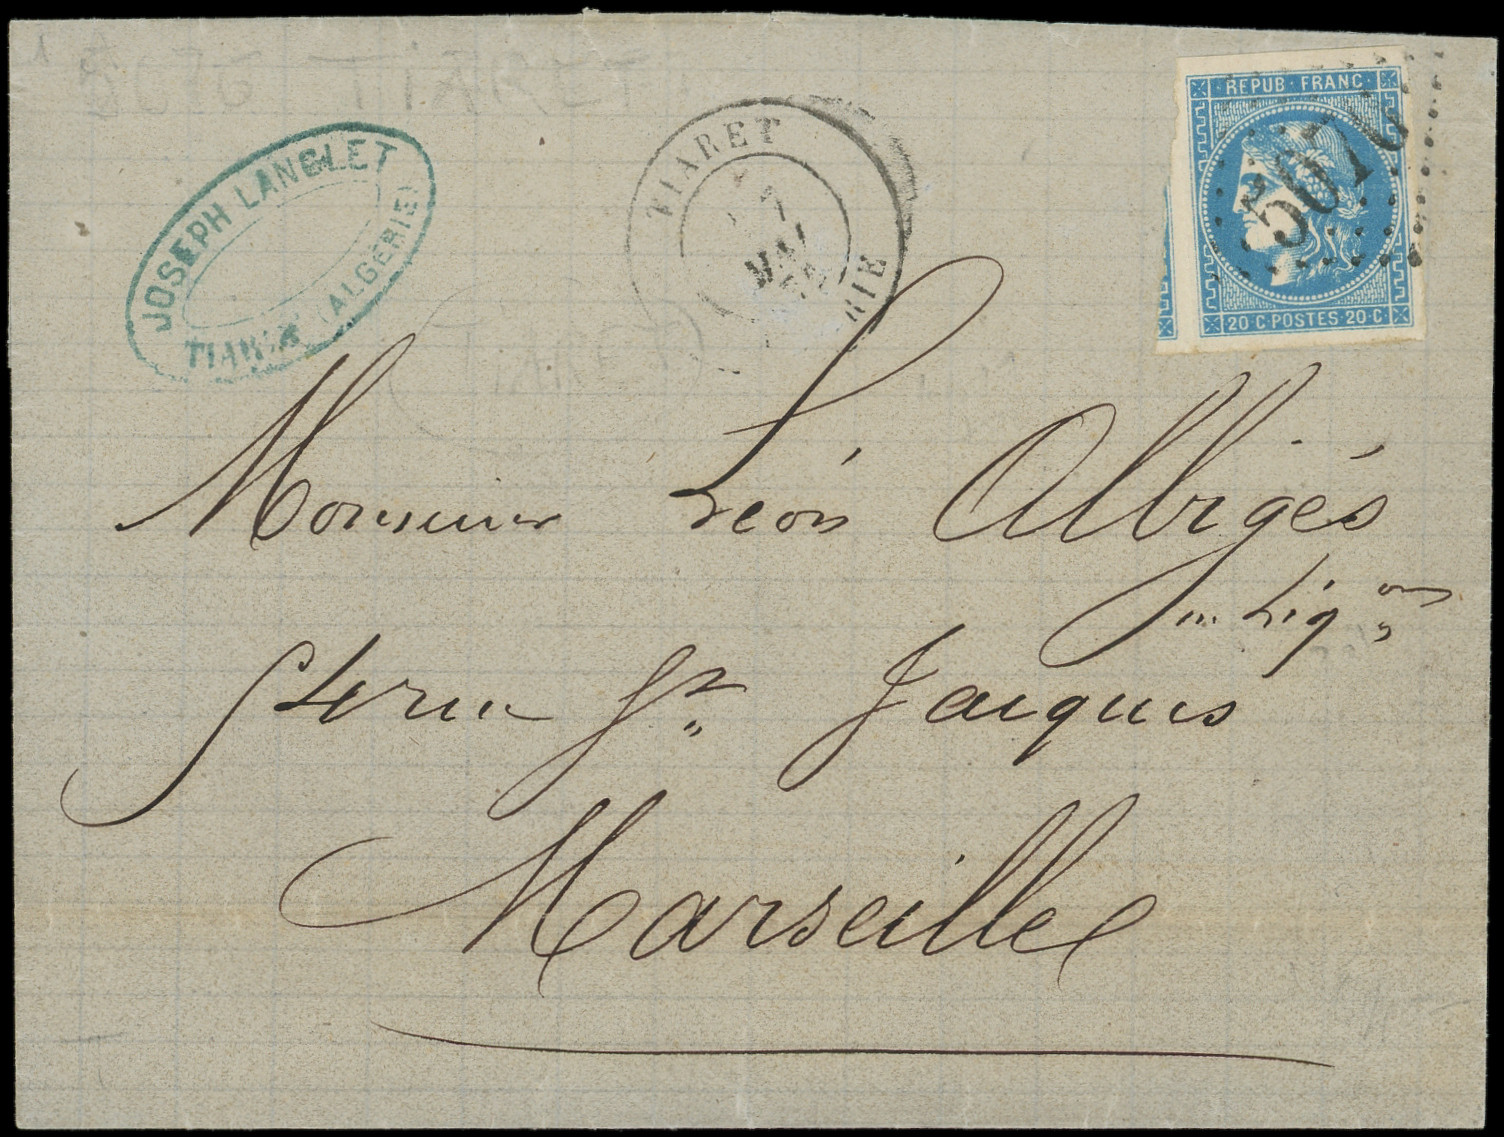 TIARET
JOSEPH LANGLET
TIARET (ALGERIE)
TIARET
7
MAI
RIE
REPUB·FRANC·
5076
20·C·POSTES·20·C·
Monsieur Léon Albigés
en Liq.ons
St Jacques
Marseille